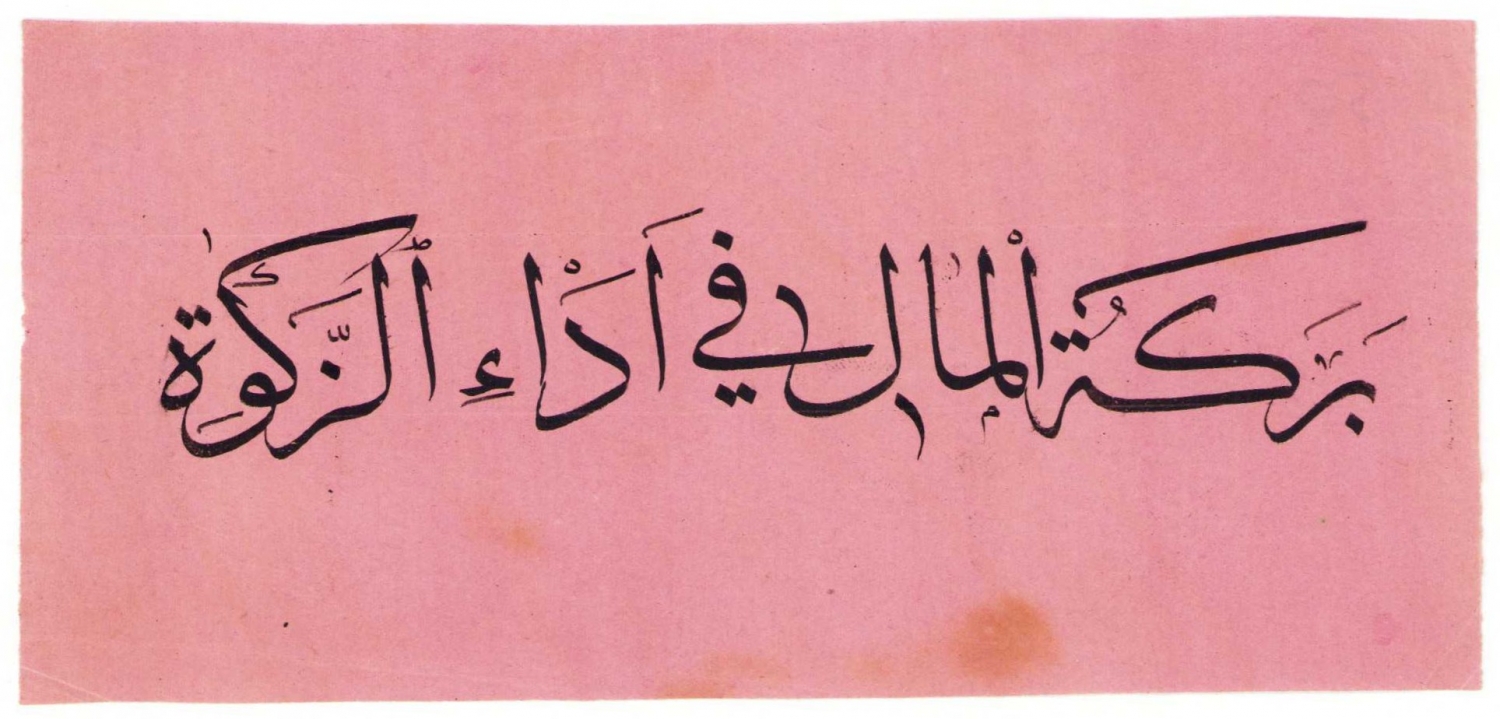 بَرَكَةُ الْمالِ في اَدَاءِ الزَّكٰوةِ